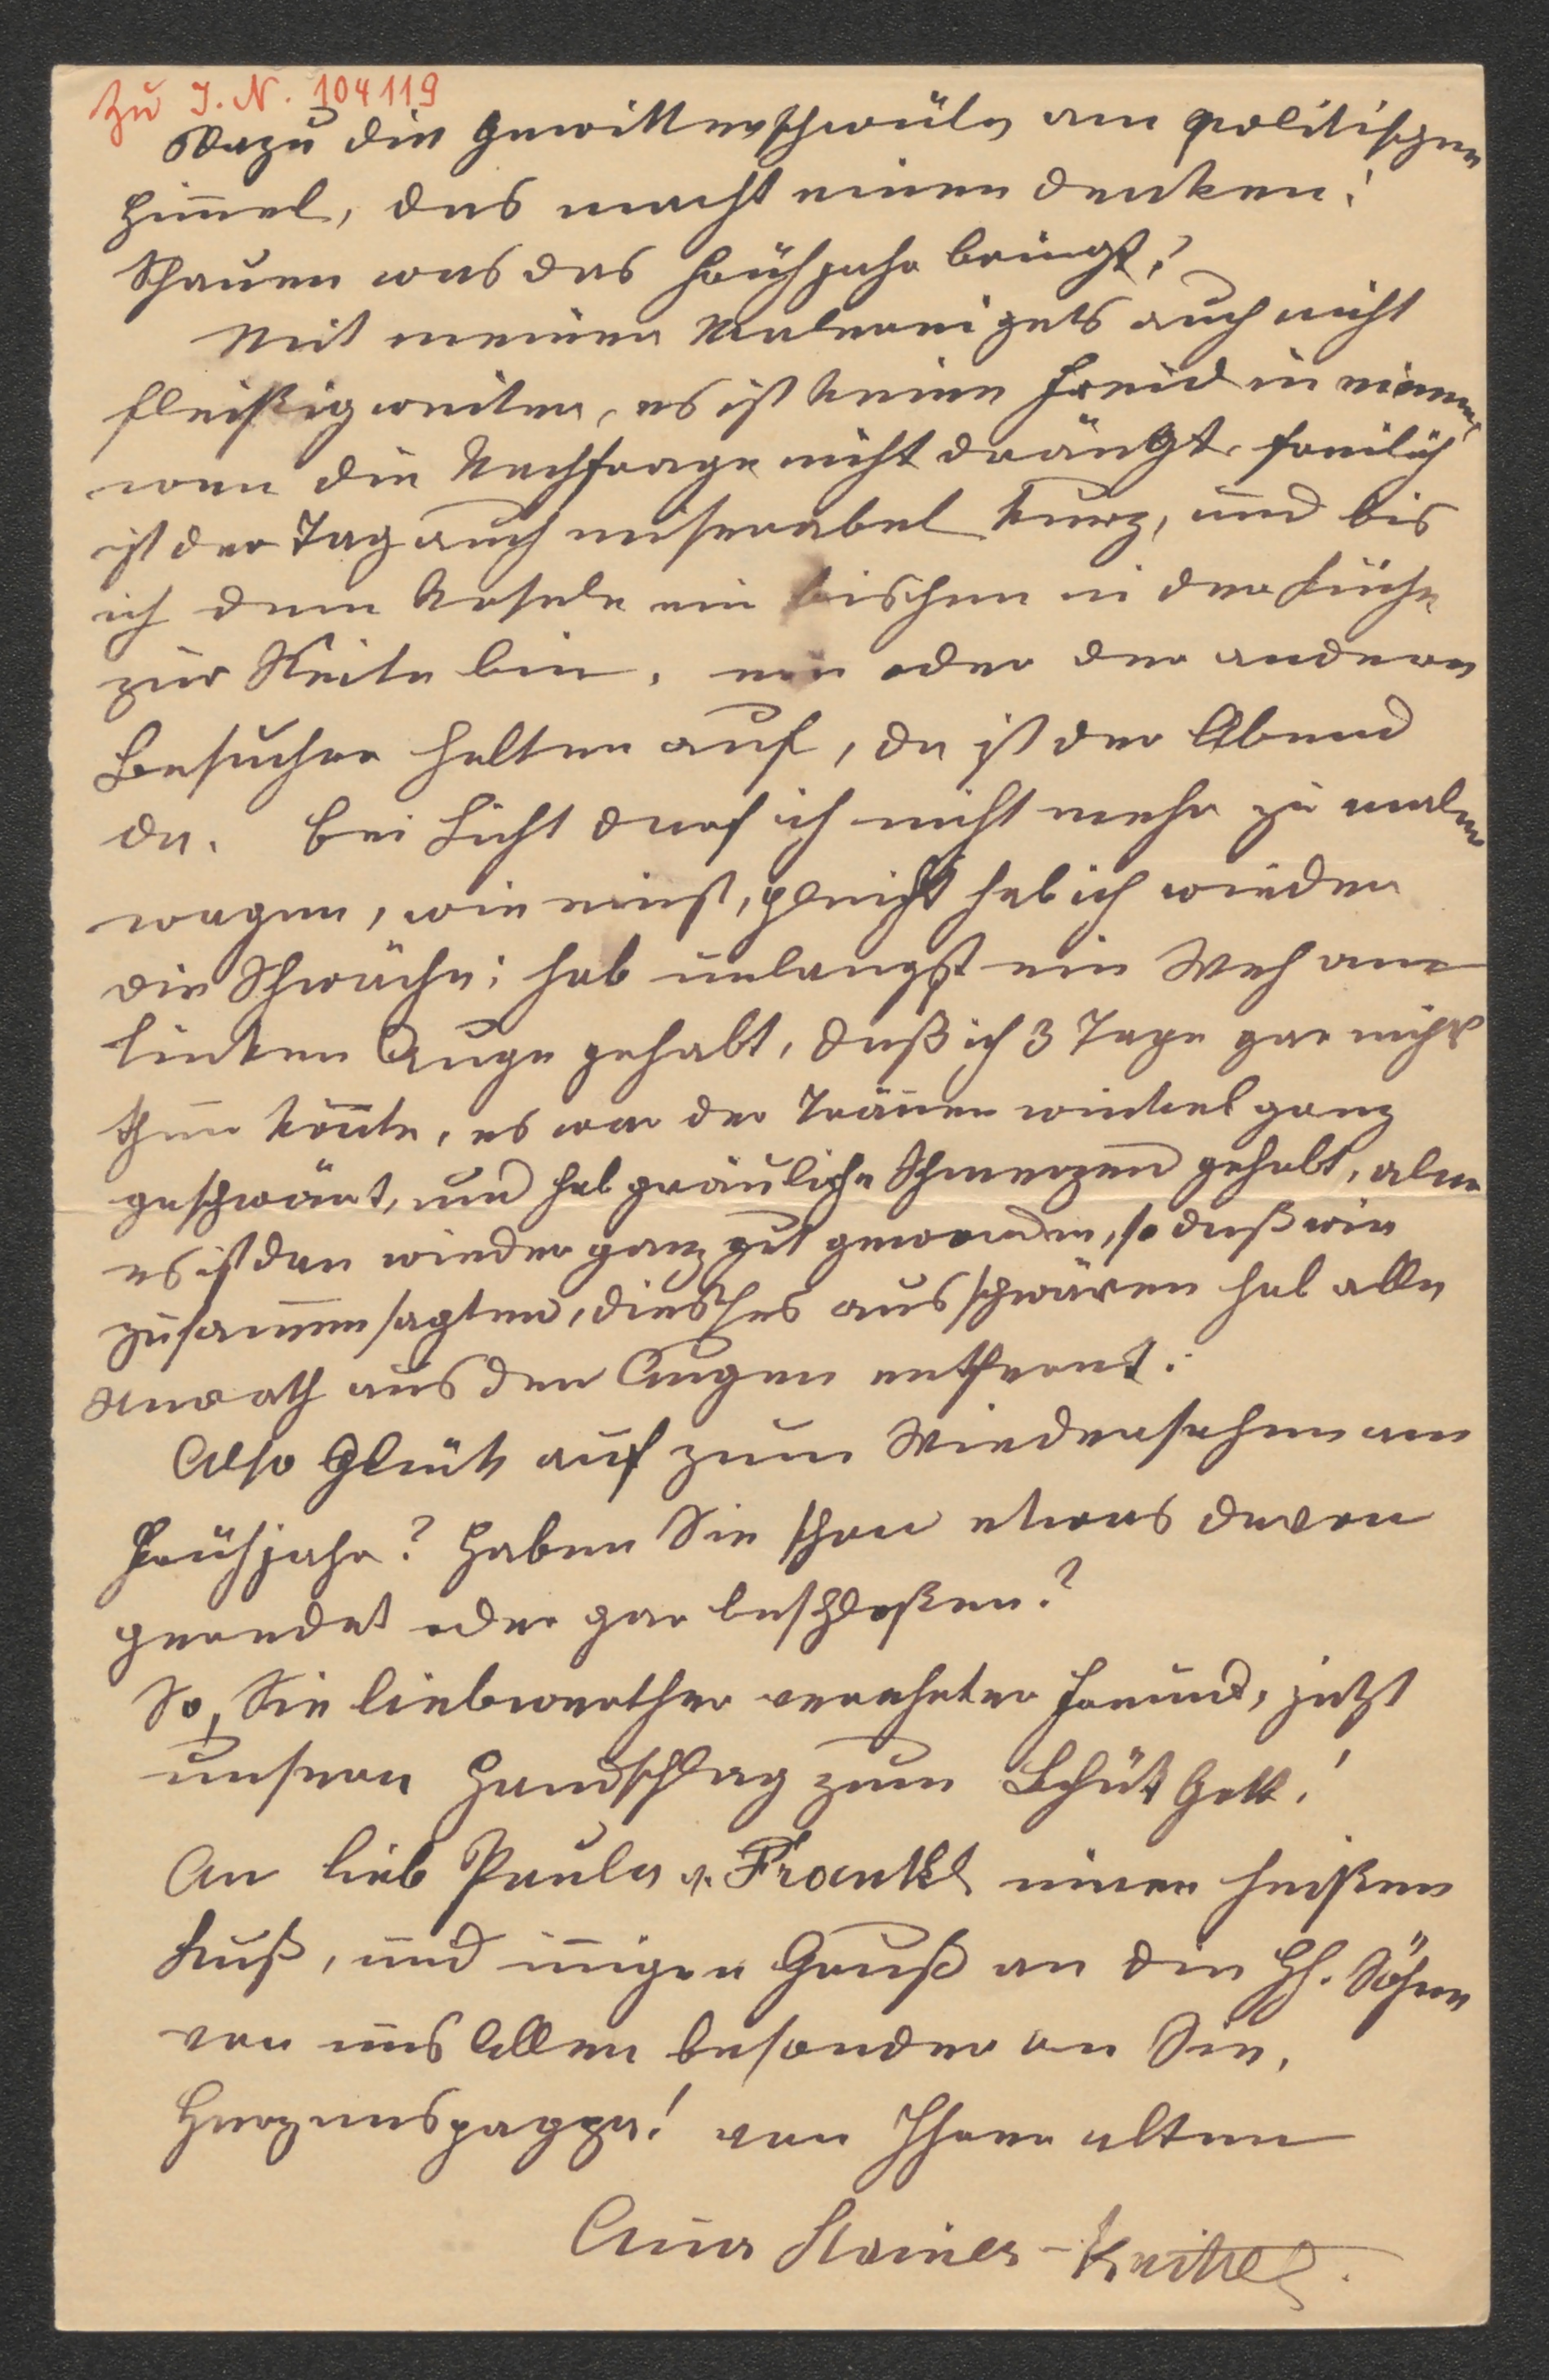 Zu I. N. 104119
Dazu die Gewitterschwüle am politischen
Him̄el, das macht einen denken!
Schauen was das Frühjahr bringt?
Mit meiner Malerei gehts auch nicht
fleißig weiter, es ist keine Freid in einem,
wen die Nachfrage nicht drängt, freilich
ist der Tag auch miserabel kurz, und bis
ich dem Rosele ein bischen in der Küche
zur Seite bin, ein oder der andere
Besucher halten auf, da ist der Abend
da. Bei Licht darf ich nicht mehr zu malen
wagen, wie einst, gleich hab ich wieder
die Schwäche; hab unlangst ein Weh am
linken Auge gehabt, daß ich 3 Tage gar nichts
thun kon̄te, es war der Tränen winkel ganz
geschwärt, und hab gräuliche Schmerzen gehabt, aber
es ist dan wieder ganz gut geworden, so daß wir
zusam̄en sagten, dieses ausschwären hab alle
Unrath aus den Augen entfernt.
Also Glück auf zum Wiedersehen am
Frühjahr? Haben Sie schon etwas davon
geredet oder gar beschloßen?
So, Sie liebwerther verehrter Freund, jetzt
unsern Handschlag zum Bhüt Gott!
An lieb Paula v. Frankl einen heißen
Kuß, und in̄igen Gruß an die Hh. Söhne
von uns Allen besonder an Sie,
Herzenspappa! von Ihrer alten
An̄a Stainer-Knittel.